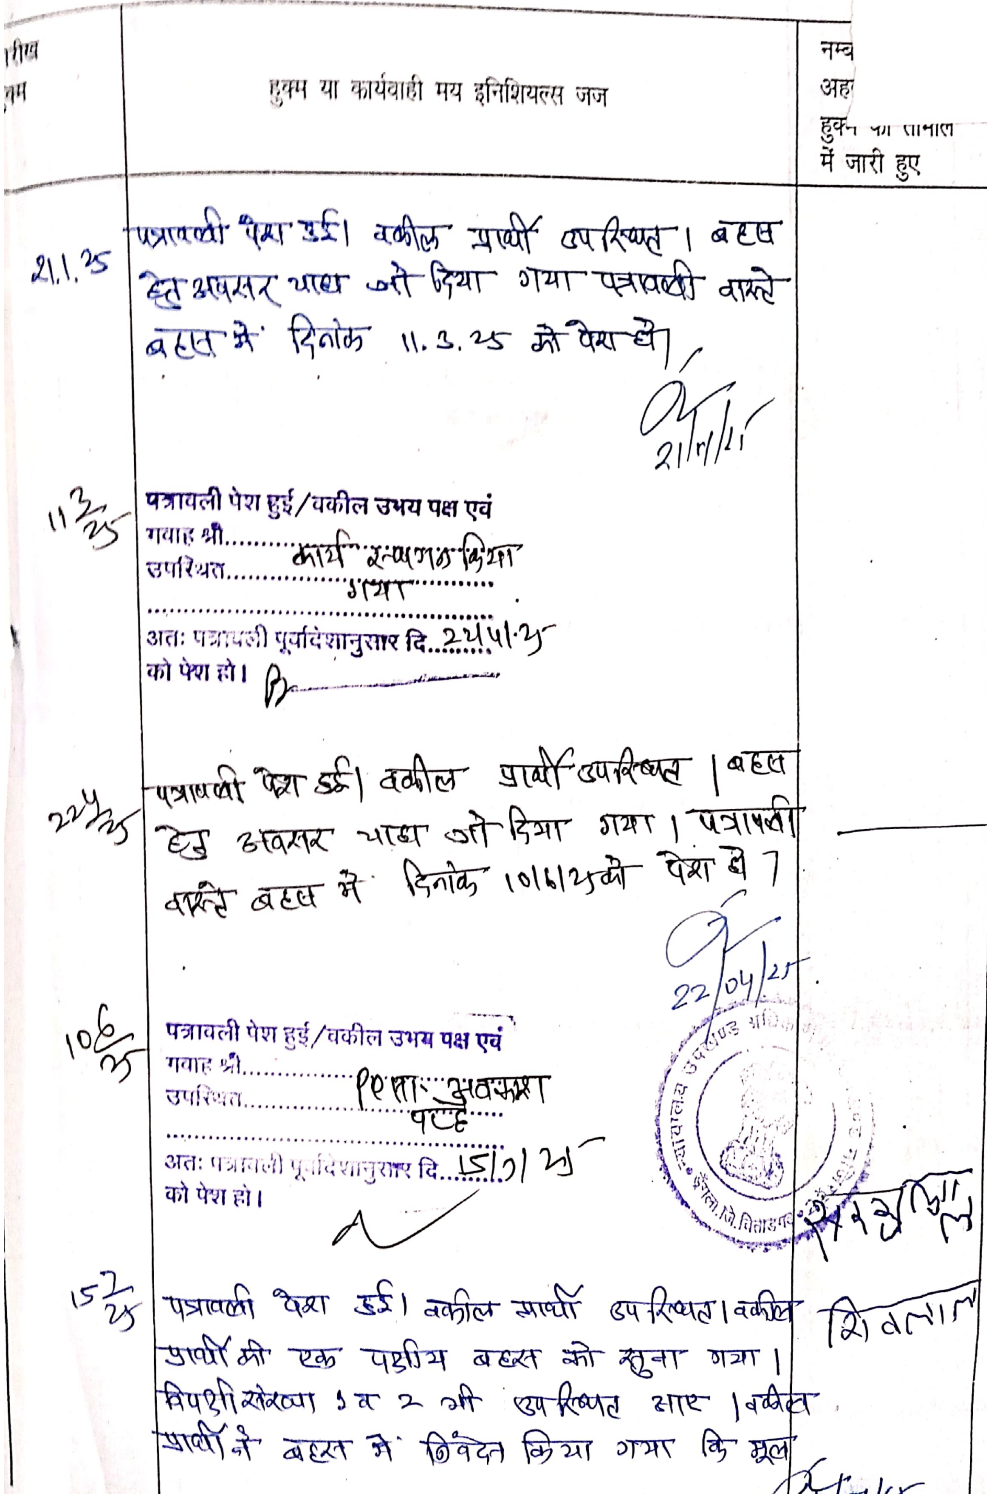 रीख
हुक्म या कार्यवाही मय इनिशियल्स जज
नम्ब
अह
हुक्म की तामील
में जारी हुए
21.1.25
पत्रावली पेश हुई। वकील प्रार्थी उपस्थित। बहस
हेतु अवसर चाहा जो दिया गया पत्रावली वास्ते
बहस में दिनांक 11.3.25 को पेश हो।
21/1/25
11 3/25
पत्रावली पेश हुई/वकील उभय पक्ष एवं
गवाह श्री
उपस्थित कार्य स्थगन किया
गया
अतः पत्रावली पूर्वादेशानुसार दि. 22/4/25
को पेश हो।
22 4/25
पत्रावली पेश हुई। वकील प्रार्थी उपस्थित। बहस
हेतु अवसर चाहा जो दिया गया। पत्रावली
वास्ते बहस में दिनांक 10/6/25 को पेश हो
22/04/25
10 6/25
पत्रावली पेश हुई/वकील उभय पक्ष एवं
गवाह श्री
उपस्थित अवकाश
अतः पत्रावली पूर्वादेशानुसार दि. 15/7/25
को पेश हो।
न्यायालय उपखण्ड अधिकारी
शिवलाल
15 7/25
पत्रावली पेश हुई। वकील प्रार्थी उपस्थित। वकील
प्रार्थी की एक पक्षीय बहस को सुना गया।
विपक्षी संख्या 1 व 2 भी उपस्थित आए। वकील
प्रार्थी ने बहस में निवेदन किया गया कि मूल